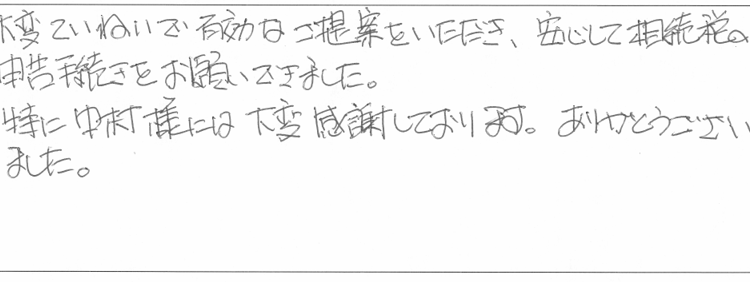 大変ていねいで有効なご提案をいただき、安心して相続税の
申告手続きをお願いできました。
特に中村様には大変感謝しております。ありがとうござい
ました。